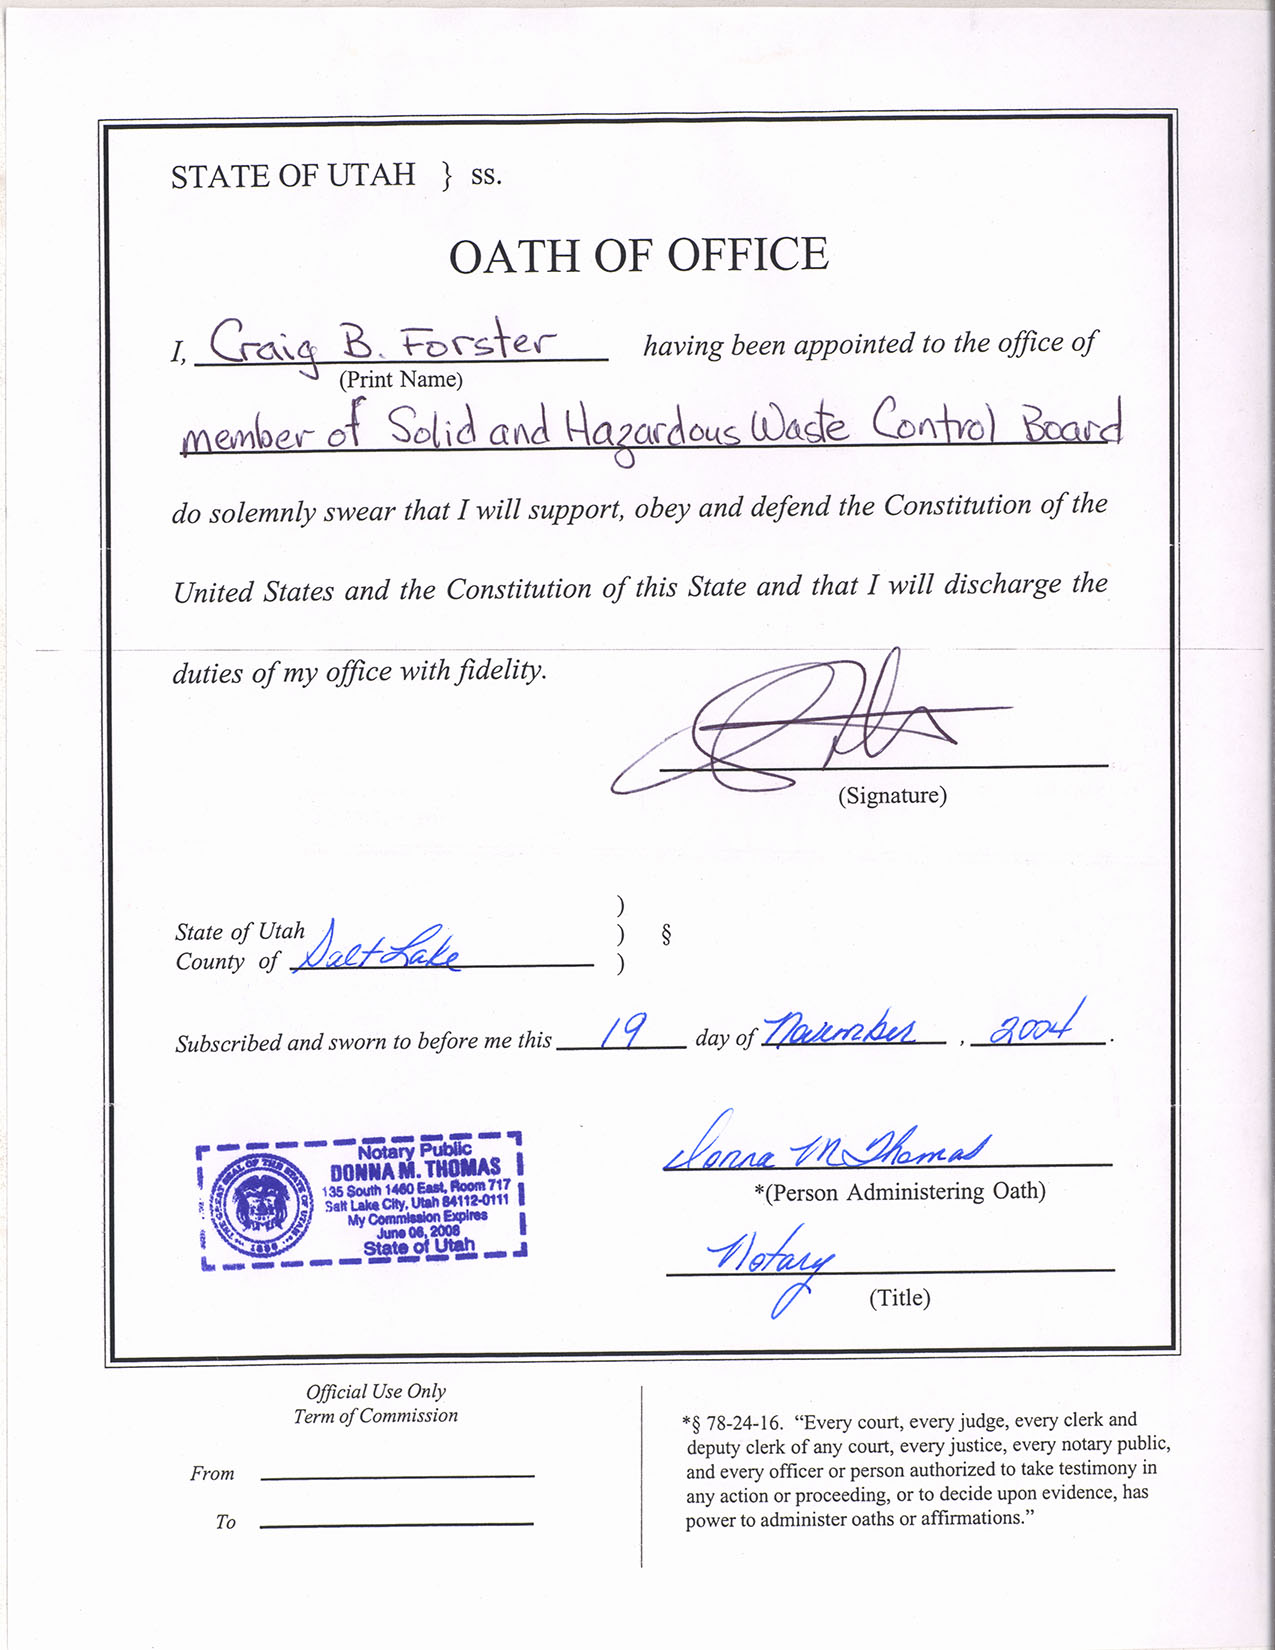 STATE OF UTAH } ss.
OATH OF OFFICE
I, Craig B. Forster having been appointed to the office of
(Print Name)
member of Solid and Hazardous Waste Control Board
do solemnly swear that I will support, obey and defend the Constitution of the
United States and the Constitution of this State and that I will discharge the
duties of my office with fidelity.
(Signature)
)
State of Utah ) §
County of Salt Lake )
Subscribed and sworn to before me this 19 day of November, 2004.
Notary Public
DONNA M. THOMAS
135 South 1460 East, Room 717
Salt Lake City, Utah 84112-0111
My Commission Expires
June 06, 2008
State of Utah
THE GREAT SEAL OF THE STATE OF UTAH
1896
Donna M Thomas
*(Person Administering Oath)
Notary
(Title)
Official Use Only
Term of Commission
From
To
*§ 78-24-16. “Every court, every judge, every clerk and
deputy clerk of any court, every justice, every notary public,
and every officer or person authorized to take testimony in
any action or proceeding, or to decide upon evidence, has
power to administer oaths or affirmations.”